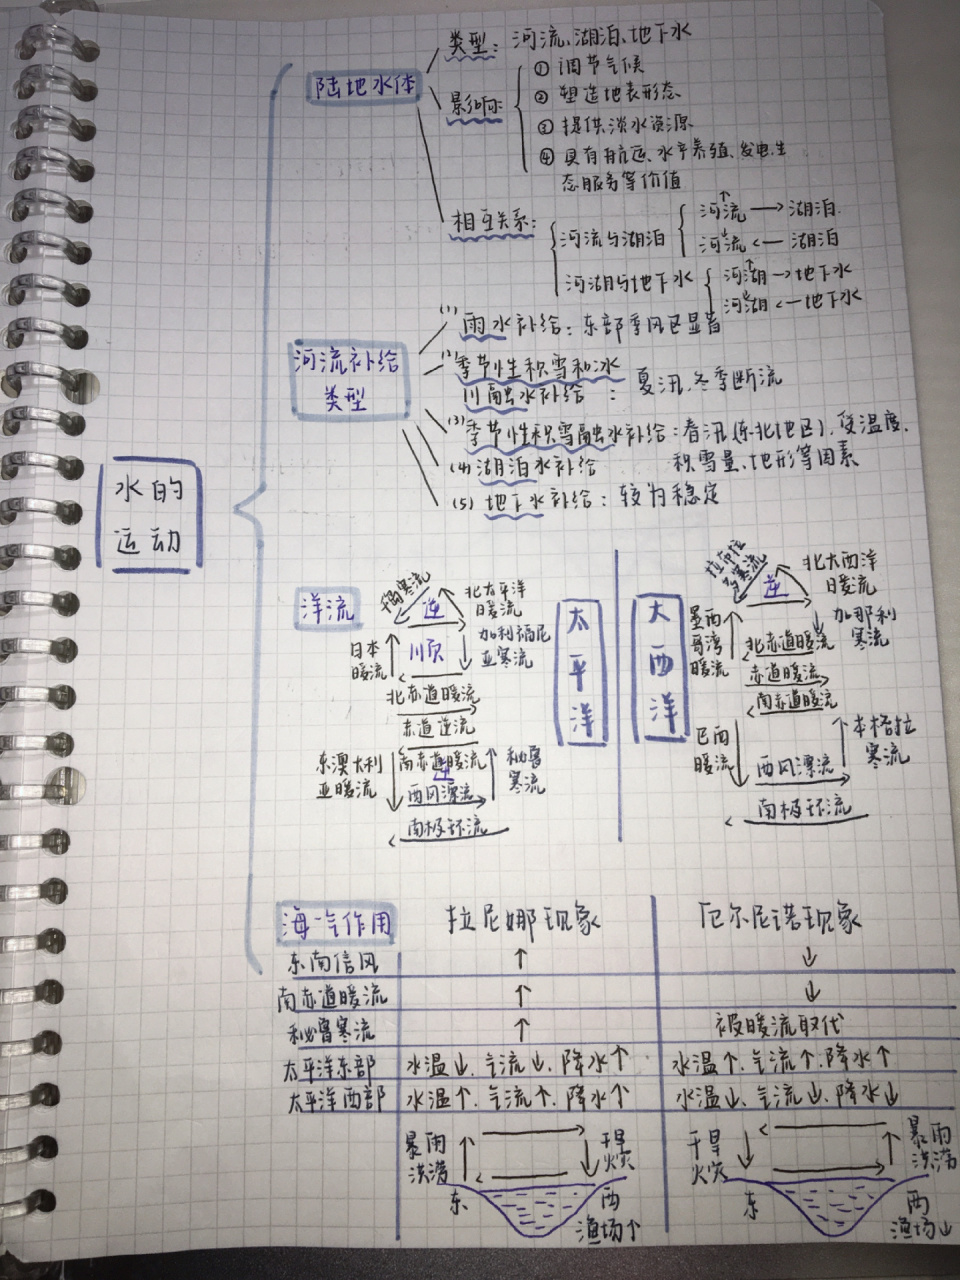 水的
运动
陆地水体
类型：河流、湖泊、地下水
影响：
① 调节气候
② 塑造地表形态
③ 提供淡水资源
④ 具有航运、水产养殖、发电、生
态服务等价值
相互关系：
河流与湖泊
河流↑ → 湖泊
河流↓ ← 湖泊
河湖与地下水
河湖↑ → 地下水
河湖↓ ← 地下水
河流补给
类型
(1) 雨水补给：东部季风区显著
(2) 季节性积雪和冰
川融水补给： 夏汛、冬季断流
(3) 季节性积雪融水补给：春汛（东北地区），受温度、
积雪量、地形等因素
(4) 湖泊水补给
(5) 地下水补给：较为稳定
洋流
太平洋
千岛寒流
逆
北太平洋
暖流
日本
暖流
顺
加利福尼
亚寒流
北赤道暖流
赤道逆流
南赤道暖流
东澳大利
亚暖流
逆
秘鲁
寒流
西风漂流
南极环流
大西洋
拉布拉
多寒流
逆
北大西洋
暖流
墨西
哥湾
暖流
加那利
寒流
北赤道暖流
赤道暖流
南赤道暖流
巴西
暖流
本格拉
寒流
西风漂流
南极环流
海-气作用 拉尼娜现象 厄尔尼诺现象
东南信风 ↑ ↓
南赤道暖流 ↑ ↓
秘鲁寒流 ↑ 被暖流取代
太平洋东部 水温↓、气流↓、降水↑ 水温↑、气流↑、降水↑
太平洋西部 水温↑、气流↑、降水↑ 水温↓、气流↓、降水↓
暴雨
洪涝
干旱
火灾
东
西
渔场↑
干旱
火灾
暴雨
洪涝
东
西
渔场↓